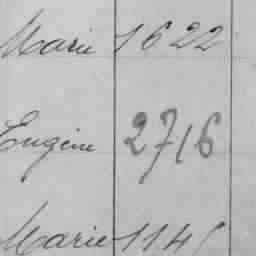 Marie 1622
Eugène 2716
Marie 114